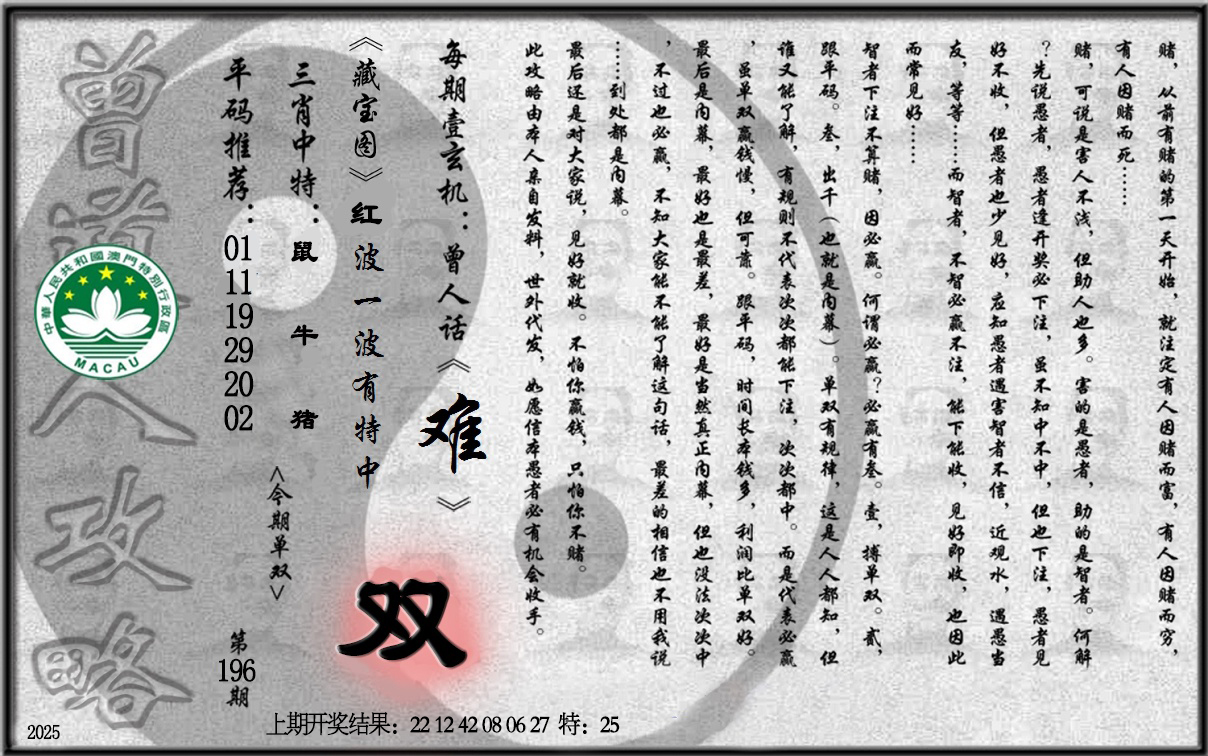 赌，从前有赌的第一天开始，就注定有人因赌而富，有人因赌而穷，
有人因赌而死……
赌，可说是害人不浅，但助人也多。害的是愚者，助的是智者。何解
？先说愚者，愚者逢开奖必下注，虽不知中不中，但也下注，愚者见
好不收，但愚者也少见好，应知愚者遇害智者不信，近观水，遇愚当
友，等等……而智者，不智必赢不注，能下能收，见好即收，也因此
而常见好……
智者下注不算赌，因必赢。何谓必赢？必赢有叁。壹，搏单双。贰，
跟平码。叁，出千（也就是内幕）。单双有规律，这是人人都知，但
谁又能了解，有规则不代表次次都能下注，次次都中。而是代表必赢
，虽单双赢钱慢，但可靠。跟平码，时间长本钱多，利润比单双好。
最后是内幕，最好也是最差，最好是当然真正内幕，但也没法次次中
，不过也必赢，不知大家能不能了解这句话，最差的相信也不用我说
……到处都是内幕。
最后还是对大家说，见好就收。不怕你赢钱，只怕你不赌。
此攻略由本人亲自发料，世外代发，如愿信本愚者必有机会收手。
每期壹玄机：曾人话《难》
《藏宝图》红波一波有特中
双
三肖中特：鼠牛猪
<今期单双>
平码推荐：
01
11
19
29
20
02
第
196
期
曾道人攻略
中華人民共和國澳門特別行政區
MACAU
上期开奖结果：22 12 42 08 06 27 特：25
2025